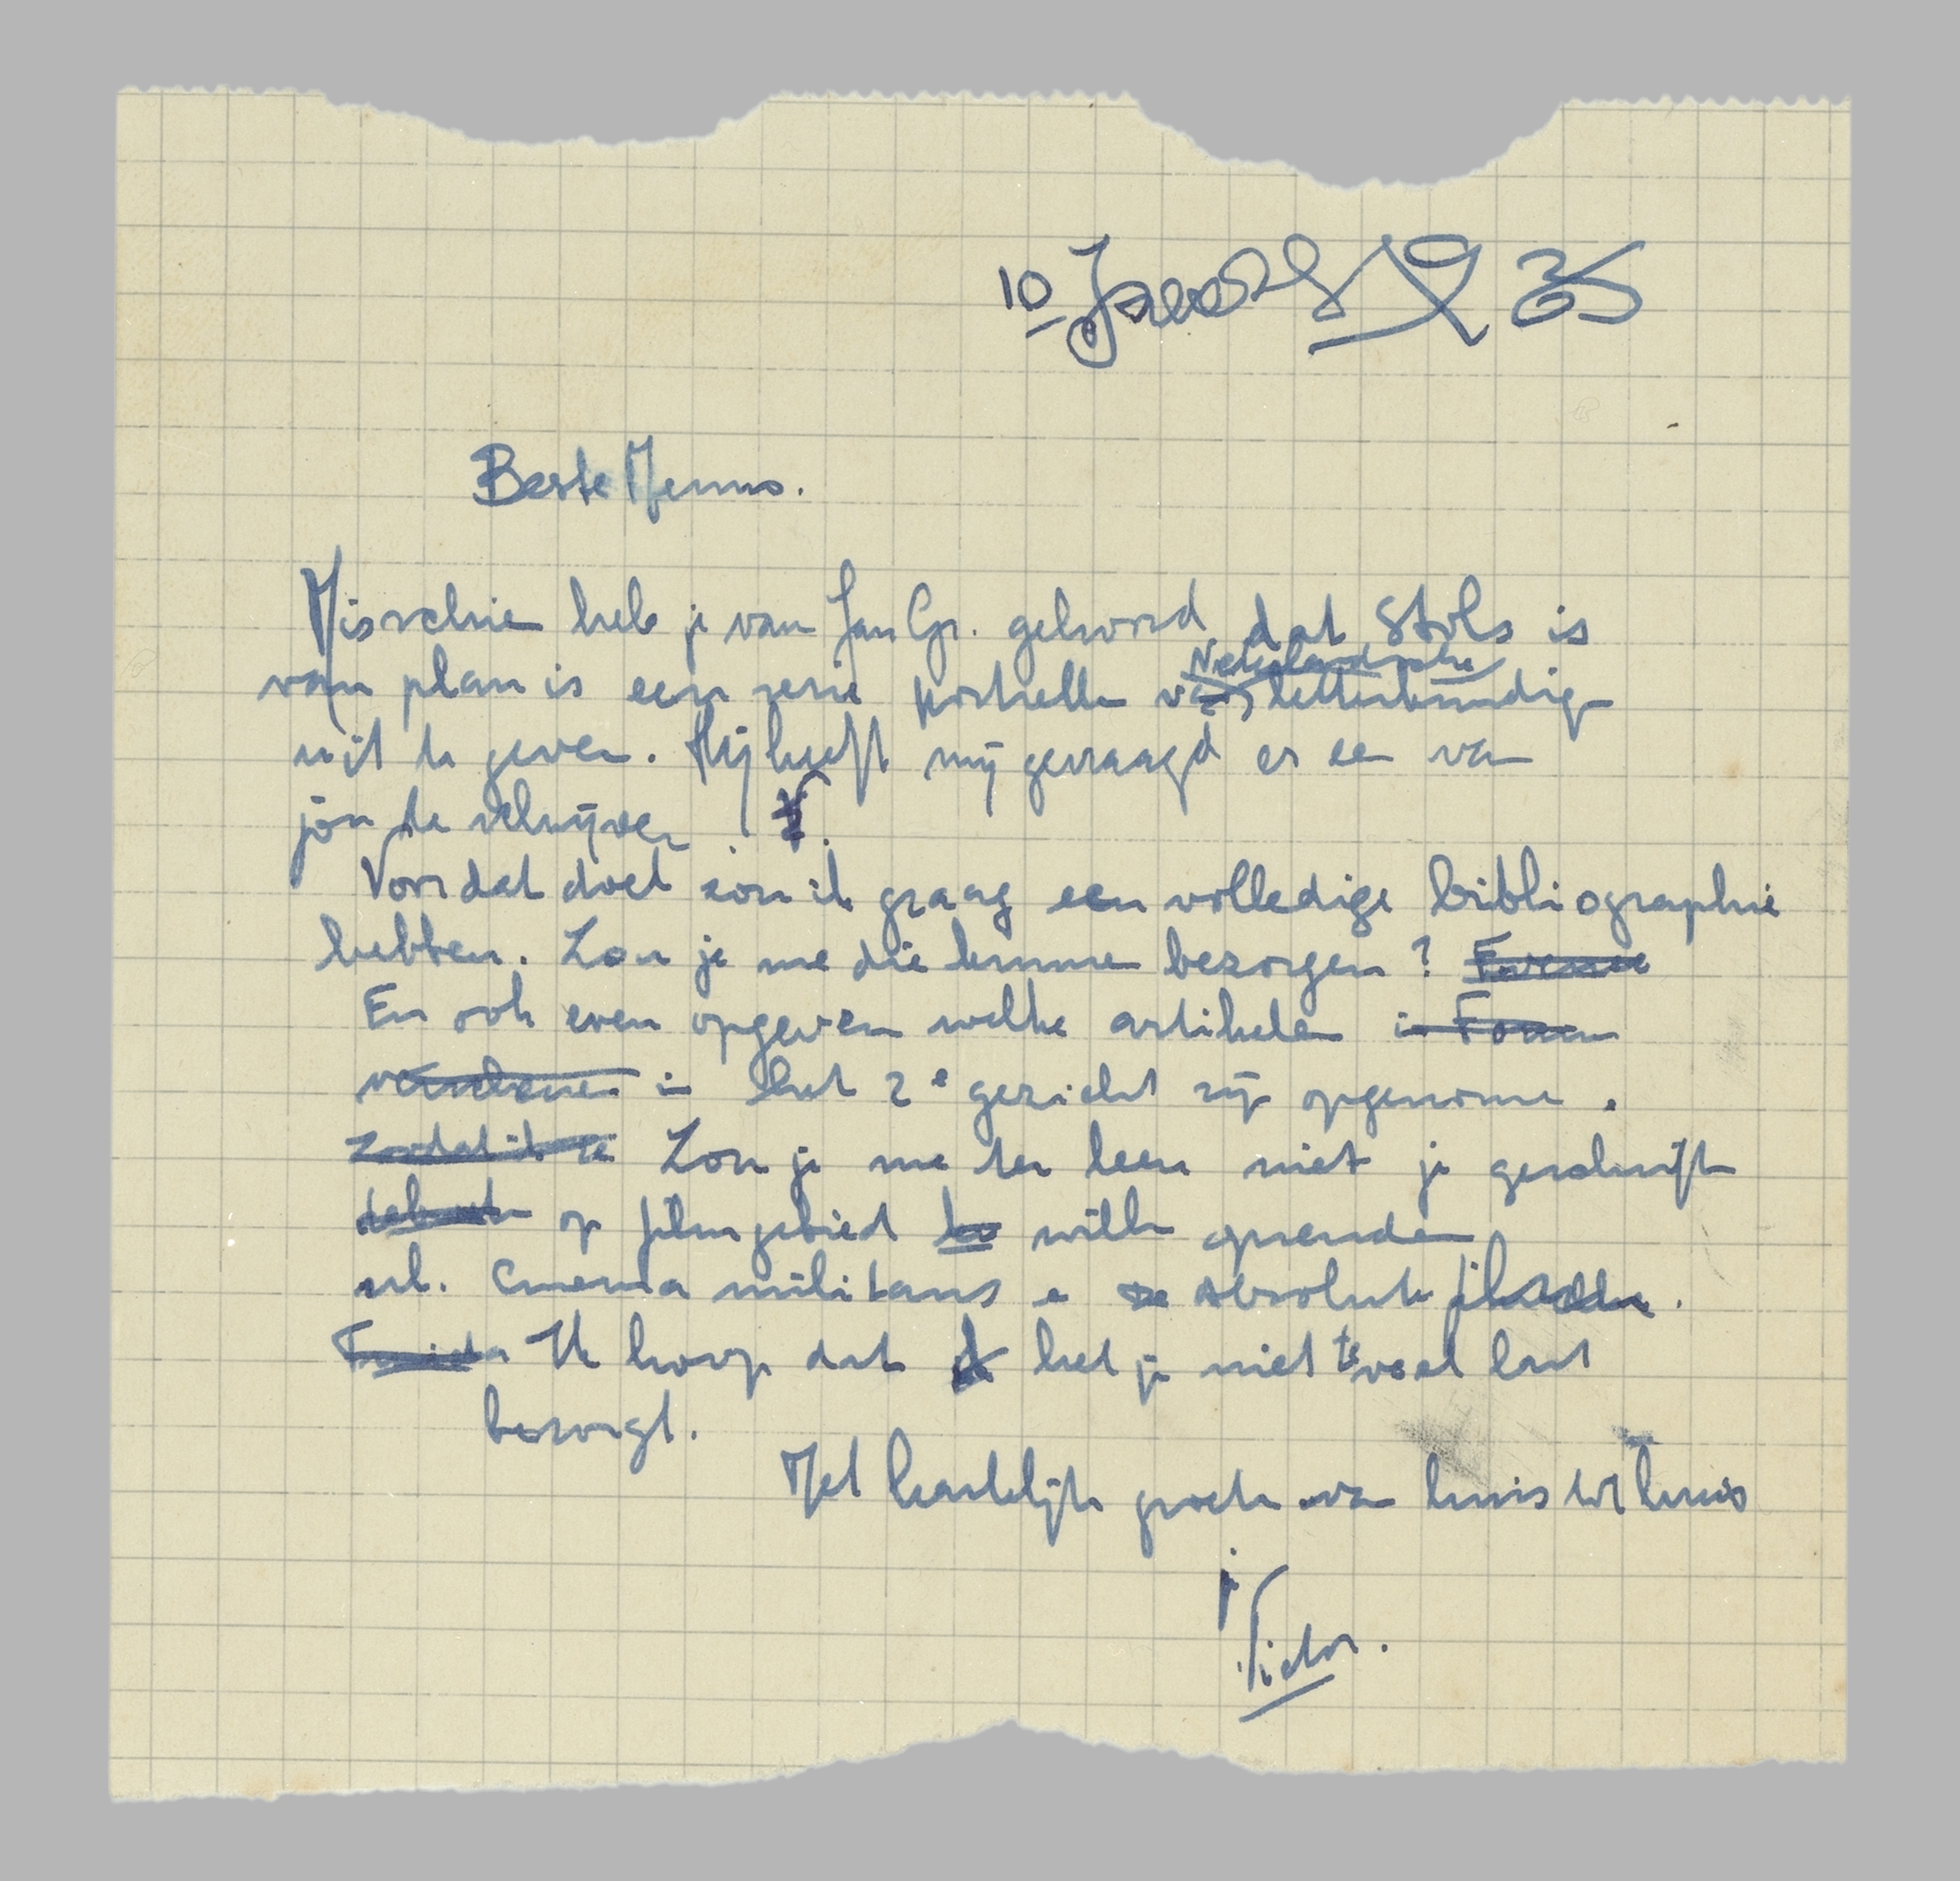 10 1935
Beste Menno.
Misschien heb je van Jan Gr. gehoord dat Stols is
van plan is een serie portretten van Nederlandsche letterkundigen
uit te geven. Hij heeft mij gevraagd er een van
jou te schrijven.
Voor dat doel zou ik graag een volledige bibliographie
hebben. Zou je me die kunnen bezorgen?
En ook even opgeven welke artikelen in Forum
verschenen in het 2e gezicht zijn opgenomen.
Zoodat ik te Zou je me ter leen niet je geschriften
op filmgebied willen opzenden
nl. Cinema militans en Absolute film
Ik hoop dat het je niet te veel last
bezorgt.
Met hartelijke groeten van huis tot huis
je
Victor.